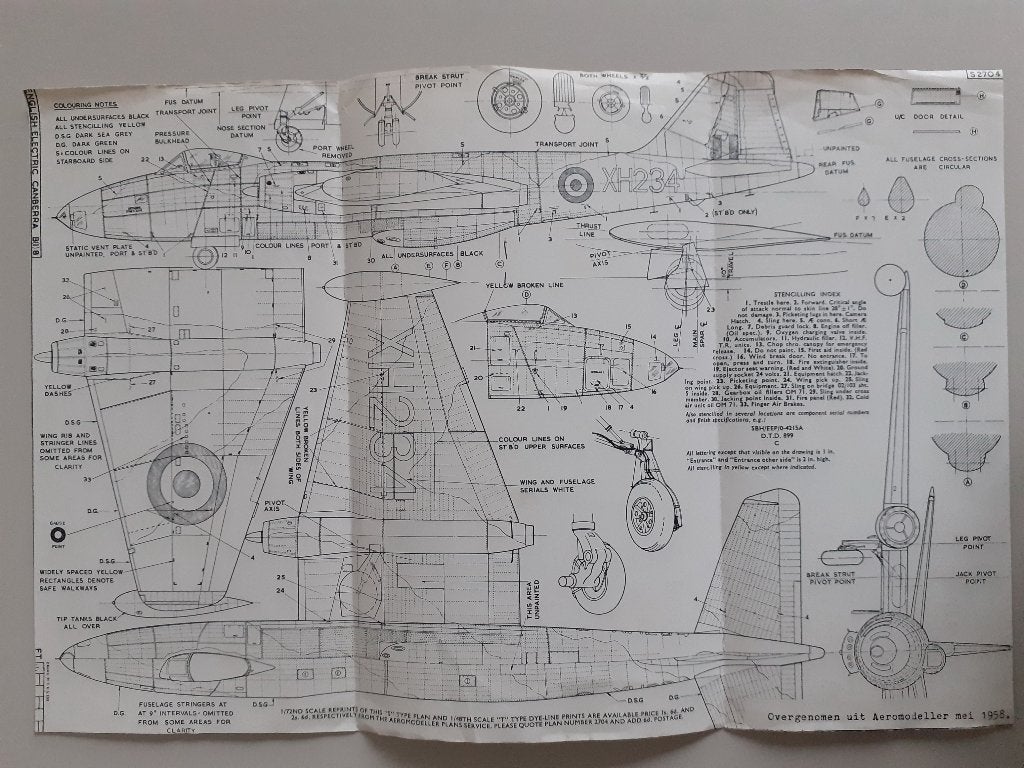 S2704
ENGLISH ELECTRIC CANBERRA B(I)8
COLOURING NOTES
ALL UNDERSURFACES BLACK
ALL STENCILLING YELLOW
D.S.G. DARK SEA GREY
D.G. DARK GREEN
S = COLOUR LINES ON
STARBOARD SIDE
FUS DATUM
TRANSPORT JOINT
PRESSURE
BULKHEAD
LEG PIVOT
POINT
NOSE SECTION
DATUM
PORT WHEEL
REMOVED
BREAK STRUT
PIVOT POINT
BOTH WHEELS
TRANSPORT JOINT
UNPAINTED
REAR FUS.
DATUM
U/C DOOR DETAIL
ALL FUSELAGE CROSS-SECTIONS
ARE CIRCULAR
XH234
2 (ST'B'D ONLY)
STATIC VENT PLATE
UNPAINTED, PORT & ST'B'D
COLOUR LINES PORT & ST'B'D
ALL UNDERSURFACES BLACK
THRUST
LINE
FUS DATUM
PIVOT
AXIS
TRAVEL
LEG
MAIN
SPAR
YELLOW BROKEN LINE
STENCILLING INDEX
1. Trestle here. 2. Forward. Critical angle
of attack normal to skin line 28° ± 1°. Do
not damage. 3. Picketing lugs in here. Camera
Hatch. 4. Sling here. 5. Æ conn. 6. Short Æ
Long. 7. Debris guard lock. 8. Engine oil filler.
(Oil spec.). 9. Oxygen charging valve inside.
10. Accumulators. 11. Hydraulic filler. 12. V.H.F.
T.R. units. 13. Chop chro. canopy for emergency
release. 14. Do not paint. 15. First aid inside. (Red
cross.) 16. Wind break door. No entrance. 17. To
open, press and turn. 18. Fire extinguisher inside.
19. Ejector seat warning. (Red and White). 20. Ground
supply socket 24 volts. 21. Equipment hatch. 22. Jack-
ing point. 23. Picketing point. 24. Wing pick up. 25. Sling
on wing pick up. 26. Equipment. 27. Sling on bridge
inside. 28. Gearbox oil fillers OM 71. 29. Sling under cross
member. 30. Jacking point inside. 31. Fire panel (Red). 32. Cold
air unit oil OM 71. 33. Finger Air Brakes.
Also stencilled in several locations are component serial numbers
and finish specifications, e.g.:
SBH/EEP/0-4215A
D.T.D. 899
C
All lettering except that visible on the drawing is 1 in.
"Entrance" and "Entrance other side" is 2 in. high.
All stencilling in yellow except where indicated.
YELLOW
DASHES
WING RIB AND
STRINGER LINES
OMITTED FROM
SOME AREAS FOR
CLARITY
YELLOW BROKEN
LINES BOTH SIDES OF
WING
XH234
COLOUR LINES ON
ST'B'D UPPER SURFACES
WING AND FUSELAGE
SERIALS WHITE
PIVOT
AXIS
GAUGE
POINT
WIDELY SPACED YELLOW
RECTANGLES DENOTE
SAFE WALKWAYS
TIP TANKS BLACK
ALL OVER
THIS AREA
UNPAINTED
BREAK STRUT
PIVOT POINT
LEG PIVOT
POINT
JACK PIVOT
POINT
FUSELAGE STRINGERS AT
AT 9" INTERVALS - OMITTED
FROM SOME AREAS FOR
CLARITY
FT
D.G.
D.S.G.
D.S.G.
D.G.
1/72ND SCALE REPRINTS OF THIS "S" TYPE PLAN AND 1/48TH SCALE "T" TYPE DYE-LINE PRINTS ARE AVAILABLE PRICE 1s. 6d. AND
2s. 6d. RESPECTIVELY FROM THE AEROMODELLER PLANS SERVICE. PLEASE QUOTE PLAN NUMBER 2704 AND ADD 6d. POSTAGE.
Overgenomen uit Aeromodeller mei 1958.